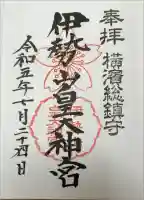 奉拝
横濱総鎮守
伊勢山皇大神宮
令和五年七月二十四日